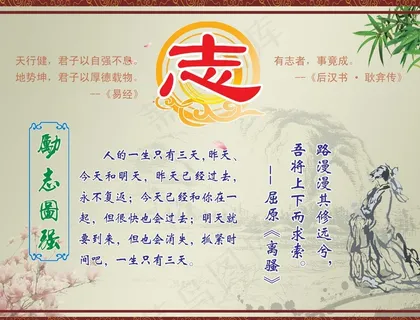 天行健，君子以自强不息。
地势坤，君子以厚德载物。
——《易经》
志
有志者，事竟成。
——《后汉书·耿弇传》
勵志圖强
人的一生只有三天，昨天、
今天和明天，昨天已经过去，
永不复返；今天已经和你在一
起，但很快也会过去；明天就
要到来，但也会消失，抓紧时
间吧，一生只有三天。
路漫漫其修远兮，
吾将上下而求索。
——屈原《离骚》